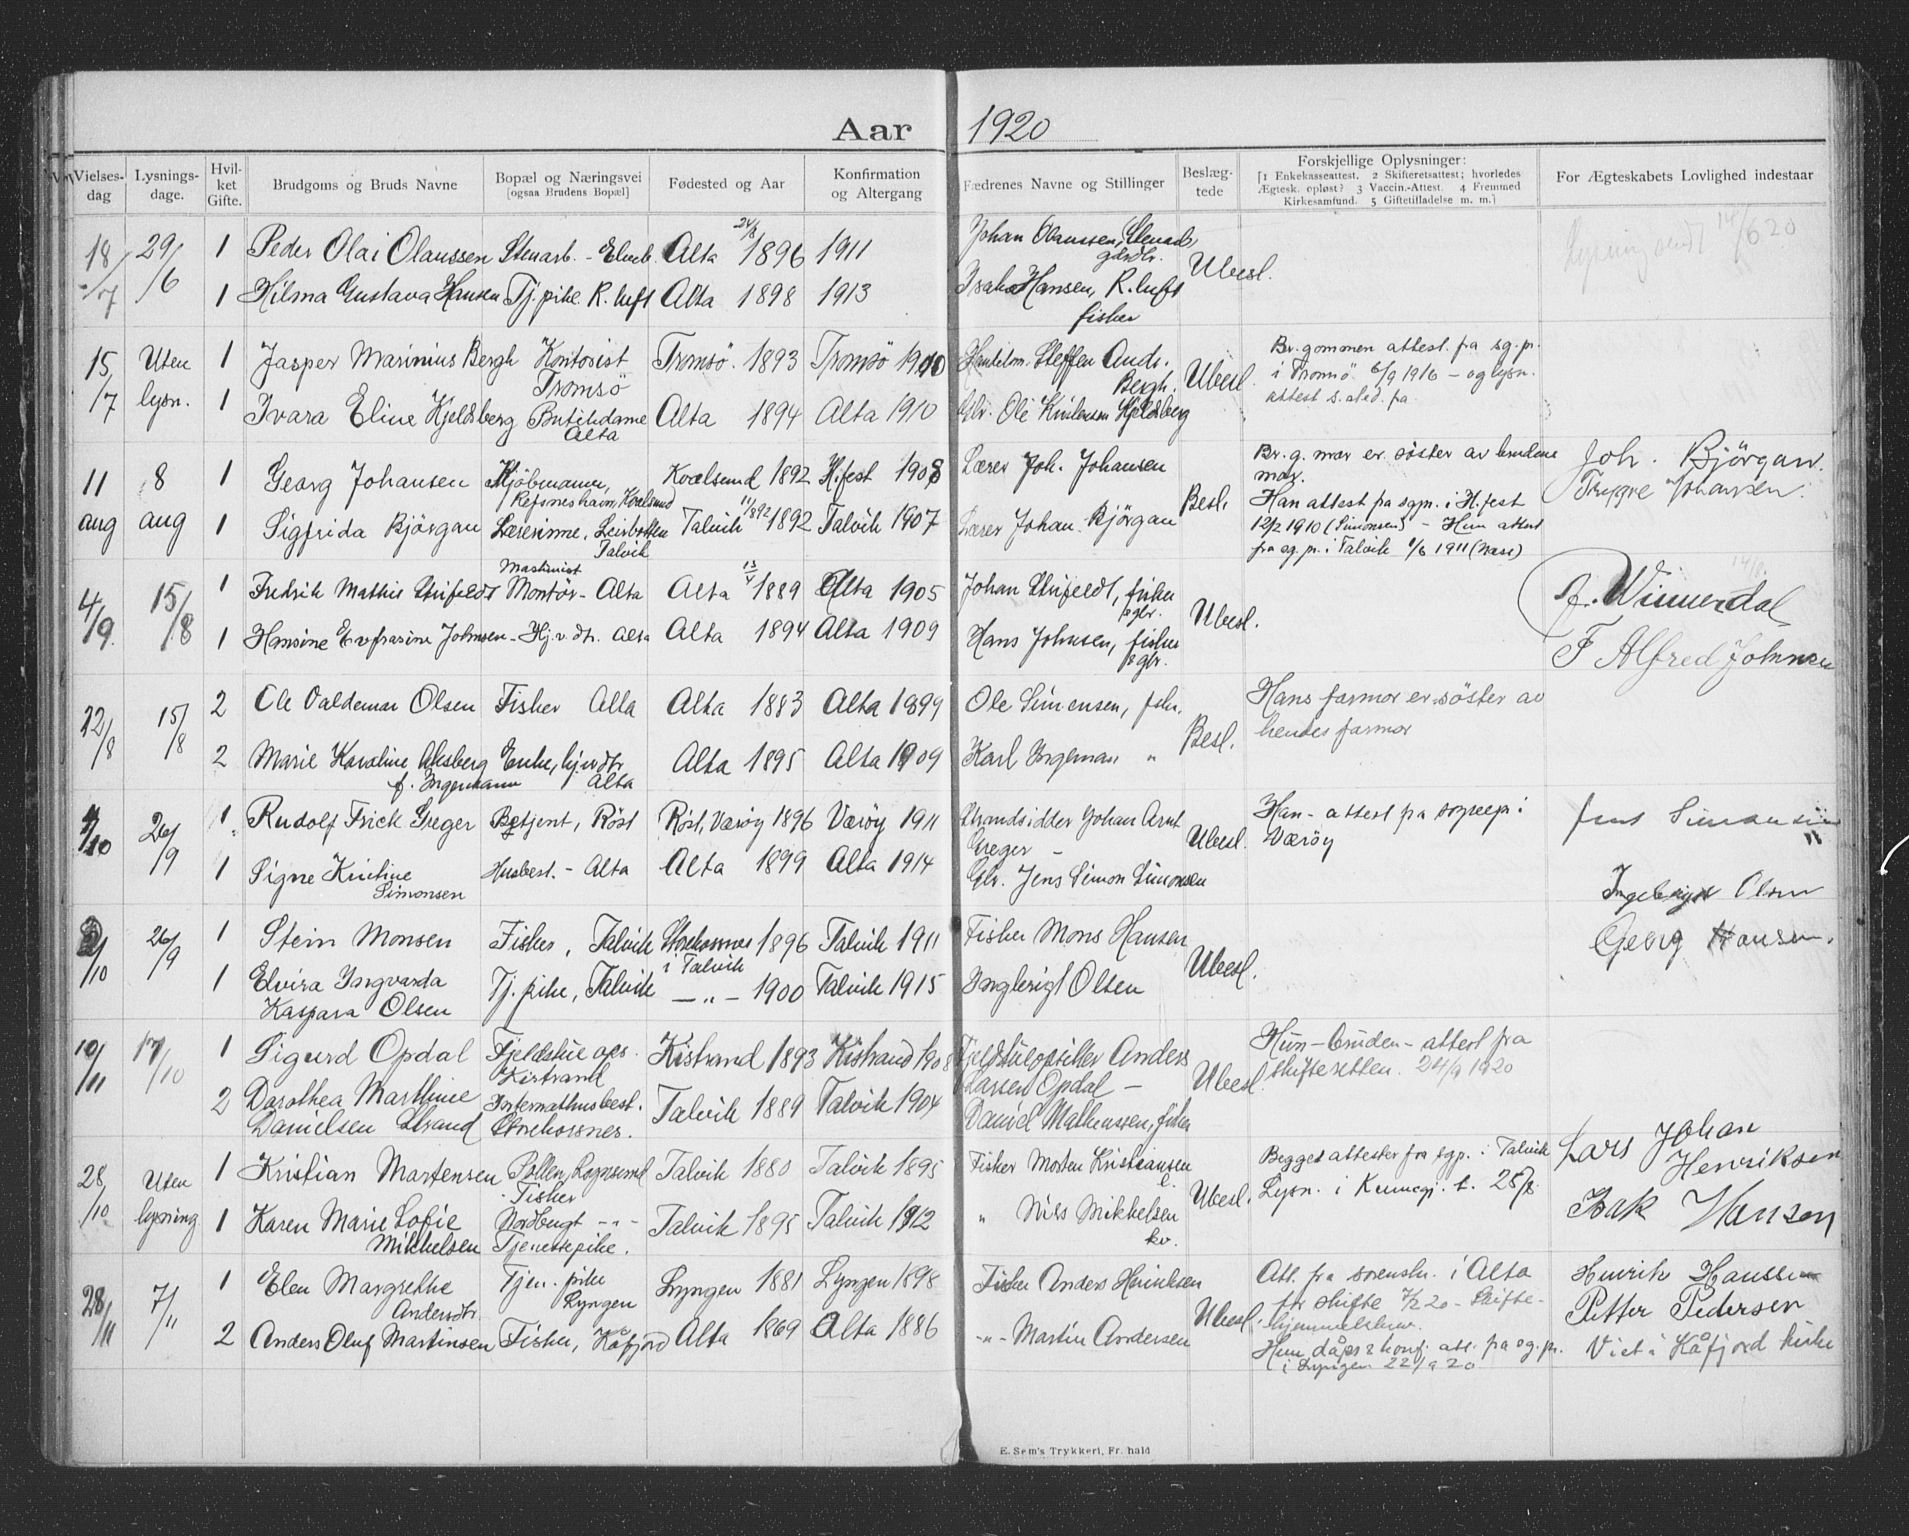 Aar 1920
Vielsesdag
Lysningsdage.
Hvilket Gifte.
Brudgoms og Bruds Navne
Bopæl og Næringsvei [ogsaa Brudens Bopæl]
Fødested og Aar
Konfirmation og Altergang
Fædrenes Navne og Stillinger
Beslægtede
Forskjellige Oplysninger:
[1 Enkekasseattest. 2 Skifteretsattest; hvorledes
Ægtesk. opløst? 3 Vaccin.-Attest. 4 Fremmed
Kirkesamfund. 5 Giftetilladelse m. m.]
For Ægteskabets Lovlighed indestaar
18/7 29/6 1 Peder Olai Olaussen Stenarb. - Elveb. Alta 24/8 1896 1911 Johan Olaussen, Stenarb. gbr. Ubesl. Lysning 14/6 20
1 Hilma Gustava Hansen Tj. pike. R. luft Alta 1898 1913 Isak Hansen, R. luft fisker
15/7 Uten lysn. 1 Jasper Marinius Bergh Kontorist Tromsö Tromsö. 1893 Tromsö 1910 Handelsm. Steffen Andr. Bergh. Ubesl. Br. gommen attest. fra sg. p.
i Tromsö 6/9 1916 - og lysn.
attest s. sted. fra
1 Ivara Eline Kjeldsberg Butikdame Alta Alta 1894 Alta 1910 Gbr. Ole Kjeldsberg
11 aug 8 aug 1 Georg Johansen Kjöbmann, Refsneshavn, Kvalsund Kvalsund 1892 H.fest 1908 Lærer Joh. Johansen Besl. Br. g. mor er söster av brudens
mor.
Han attest fra sgp. i H.fest
12/2 1910 (Simonsen) - Hun attest
fra sg. p. i Talvik 1/6 1911 Joh. Björgan.
Trygve Johansen.
1 Sigfrida Björgan Lærerinne, Leirbotten Talvik Talvik 11/8 92 1892 Talvik 1907 Lærer Johan Björgan
4/9 15/8 1 Fredrik Mathis Maskinist Montör - Alta Alta 13/4 1889 Alta 1905 Johan fisker & gbr. Ubesl. Winnerdal
F Alfred Johnsen
1 Hansine Evfrasine Johnsen - Hj. v. dtr. Alta Alta 1894 Alta 1909 Hans Johnsen, fisker & gbr.
22/8 15/8 2 Ole Valdemar Olsen Fisker Alta Alta 1883 Alta 1899 Ole Simensen, fskr. Besl. Hans farmor er söster av
hendes farmor
2 Marie Karoline Aksberg f. Ingemann Enke, hj. v. dtr Alta Alta 1895 Alta 1909 Karl Ingeman "
4/10 26/9 1 Rudolf Frick Greger Betjent, Röst Röst, Væröy 1896 Væröy 1911 Strandsidder Johan Arnt Greger - Ubesl. Han - attest fra sogneps. i
Væröy Jens Simonsen
1 Signe Kristine Simonsen Husbest. - Alta Alta 1899 Alta 1914 Gbr. Jens Simon Simonsen
2/10 26/9 1 Stein Monsen Fisker, Talvik Storekorsnes i Talvik 1896 Talvik 1911 Fisker Mons Hansen Ubesl. Ingebrigt Olsen
Georg Hansen.
1 Elvira Ingvarda Kaspara Olsen Tj. pike, Talvik - " - 1900 Talvik 1915 Ingebrigt Olsen
10/11 17/10 1 Sigurd Opdal Fjeldstueops. Kistrand Kistrand 1893 Kistrand 1908 Fjeldstueopsitter Anders Larsen Opdal - Ubesl. Hun - bruden - attest fra
skifteretten. 24/9 1920
2 Dorothea Marthine Danielsen Strand Internathusbest. Storekorsnes. Talvik 1889 Talvik 1904 Daniel Matheussen, fisker
28/10 Uten lysning 1 Kristian Martensen Pollen, Rognsund Fisker Talvik 1880 Talvik 1895 Fisker Morten Kristiansen Ubesl. Begges attester fra sgp. i Talvik
Lysn. i 25/8. Lars Johan
Henriksen
Isak Hansen
1 Karen Marie Lofie Mikkelsen Nordbugt - " - Tjenestepike. Talvik 1895 Talvik 1912 " Nils Mikkelsen kv.
28/11 7/11 1 Elen Margrethe Andersdtr. Tjen. pike Lyngen Lyngen 1881 Lyngen 1898 Fisker Anders Henriksen Ubesl. Att. fra sorenskr. i Alta
for skifte 7/2 20 - Skifte-
Hun dåps & konf. att. fra sg. pr.
i Lyngen 22/9 20 Henrik Hanssen
Petter Pedersen
Viet i Kåfjord kirke
2 Anders Oluf Martinsen Fisker, Kåfjord Alta 1869 Alta 1886 - " - Martin Andersen
E. Sem's Trykkeri, Fr. hald